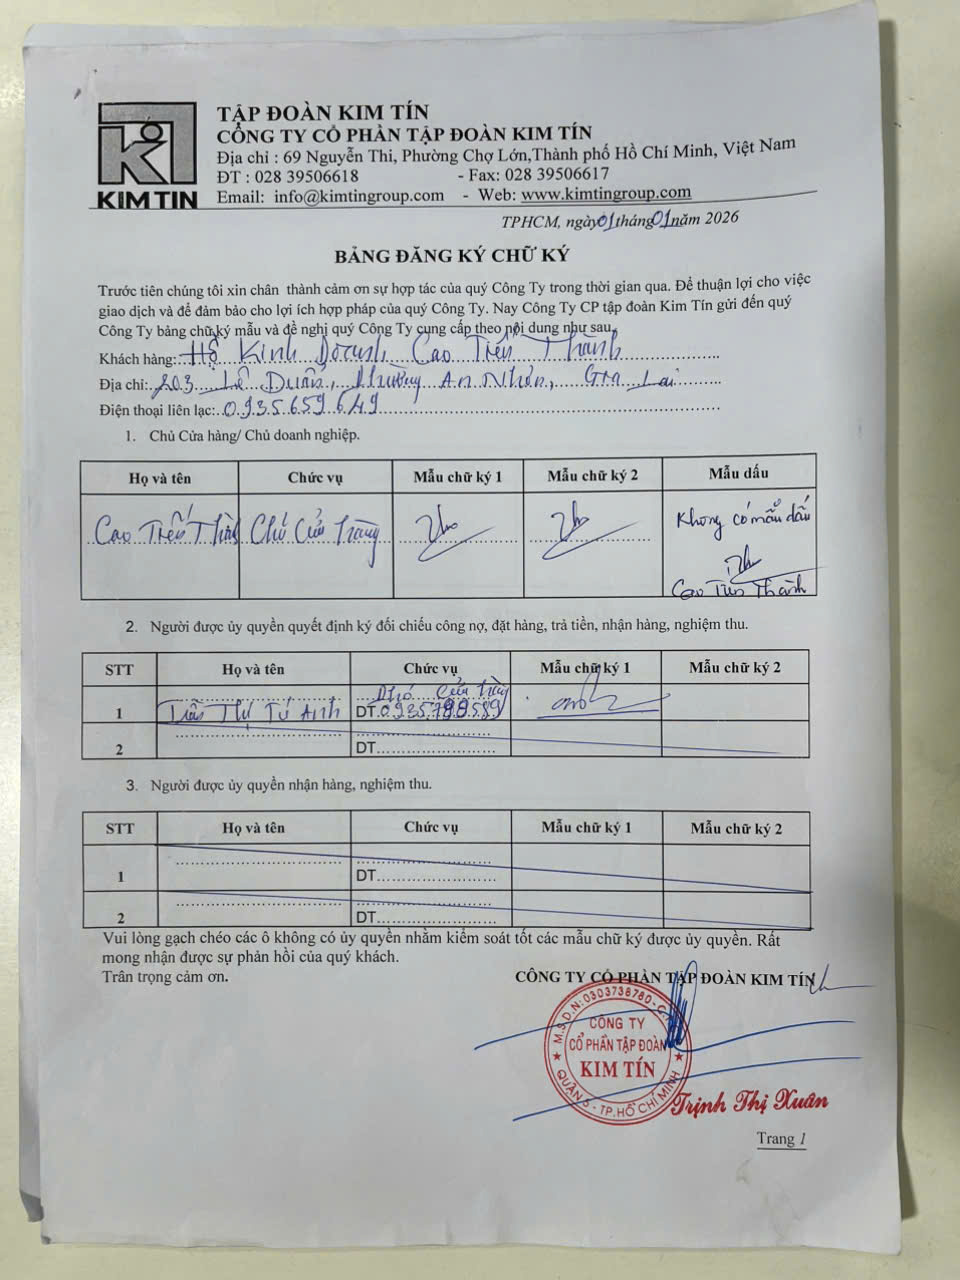 KIM TIN
TẬP ĐOÀN KIM TÍN
CÔNG TY CỔ PHẦN TẬP ĐOÀN KIM TÍN
Địa chỉ : 69 Nguyễn Thi, Phường Chợ Lớn,Thành phố Hồ Chí Minh, Việt Nam
ĐT : 028 39506618 - Fax: 028 39506617
Email: info@kimtingroup.com - Web: www.kimtingroup.com
TPHCM, ngày 01 tháng 01 năm 2026
BẢNG ĐĂNG KÝ CHỮ KÝ
Trước tiên chúng tôi xin chân thành cảm ơn sự hợp tác của quý Công Ty trong thời gian qua. Để thuận lợi cho việc
giao dịch và để đảm bảo cho lợi ích hợp pháp của quý Công Ty. Nay Công Ty CP tập đoàn Kim Tín gửi đến quý
Công Ty bảng chữ ký mẫu và đề nghị quý Công Ty cung cấp theo nội dung như sau.
Khách hàng: Hộ Kinh Doanh Cao Tiến Thành
Địa chỉ: 203 Lê Duẩn, Phường An Nhơn, Gia Lai
Điện thoại liên lạc: 0935.659.649
1. Chủ Cửa hàng/ Chủ doanh nghiệp.
Họ và tên Chức vụ Mẫu chữ ký 1 Mẫu chữ ký 2 Mẫu dấu
Cao Tiến Thành Chủ Cửa hàng Không có mẫu dấu
Cao Tiến Thành
2. Người được ủy quyền quyết định ký đối chiếu công nợ, đặt hàng, trả tiền, nhận hàng, nghiệm thu.
STT Họ và tên Chức vụ Mẫu chữ ký 1 Mẫu chữ ký 2
Phó Cửa hàng
1 Trần Thị Tú Anh DT.
2 DT
3. Người được ủy quyền nhận hàng, nghiệm thu.
STT Họ và tên Chức vụ Mẫu chữ ký 1 Mẫu chữ ký 2
1 DT
2 DT
Vui lòng gạch chéo các ô không có ủy quyền nhằm kiểm soát tốt các mẫu chữ ký được ủy quyền. Rất
mong nhận được sự phản hồi của quý khách.
Trân trọng cảm ơn.
CÔNG TY CỔ PHẦN TẬP ĐOÀN KIM TÍN
M.S.D.N: 0303738780-C
CÔNG TY
CỔ PHẦN TẬP ĐOÀN
KIM TÍN
QUẬN 5 - TP.HỒ CHÍ MINH
Trịnh Thị Xuân
Trang 1